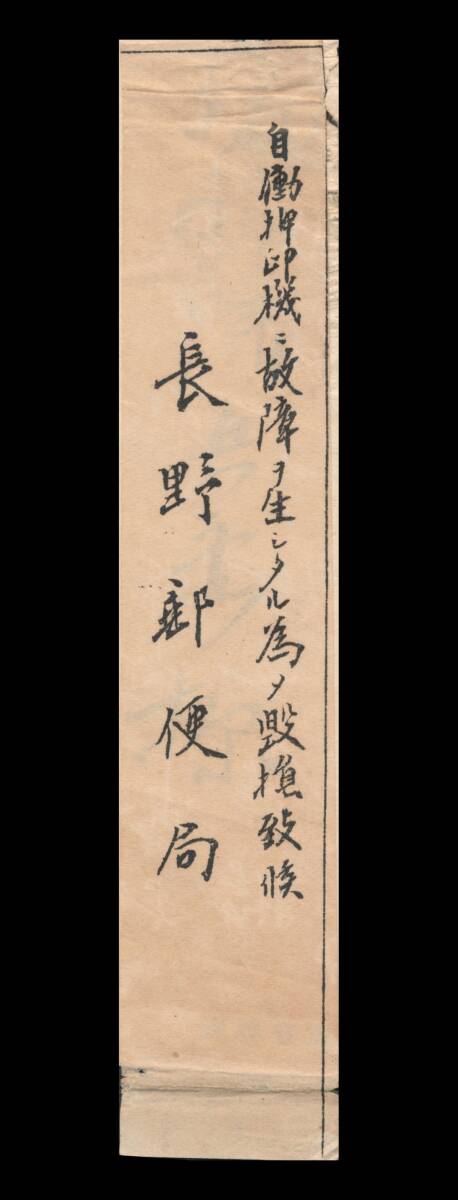 自働押印機ニ故障ヲ生シタル為メ毀損致候
長野郵便局